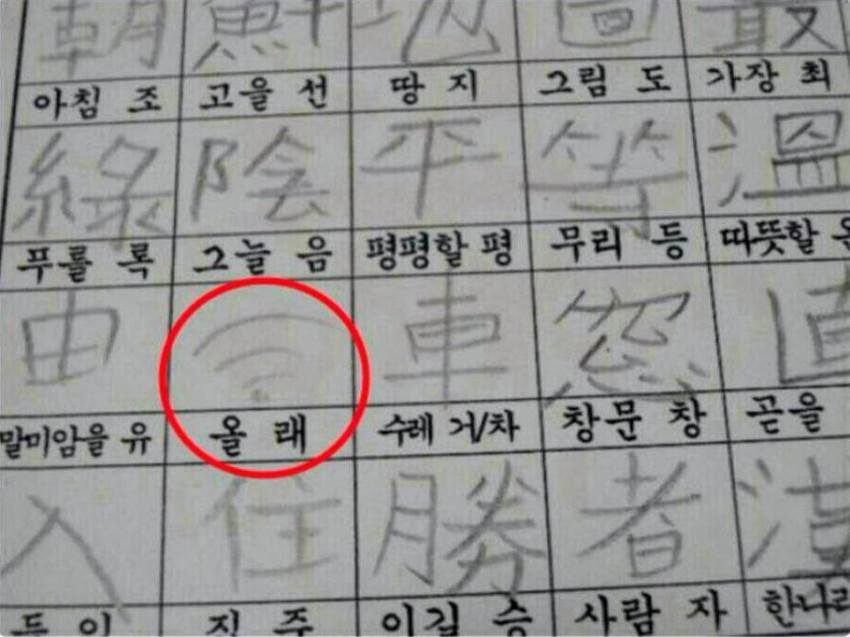 朝 鮮 地 圖 最
아침 조 고을 선 땅 지 그림 도 가장 최
綠 陰 平 等 溫
푸를 록 그늘 음 평평할 평 무리 등 따뜻할
由 車 窓 直
말미암을 유 올 래 수레 거/차 창문 창 곧을
入 住 勝 者
주 이길 승 사람 자 한나라